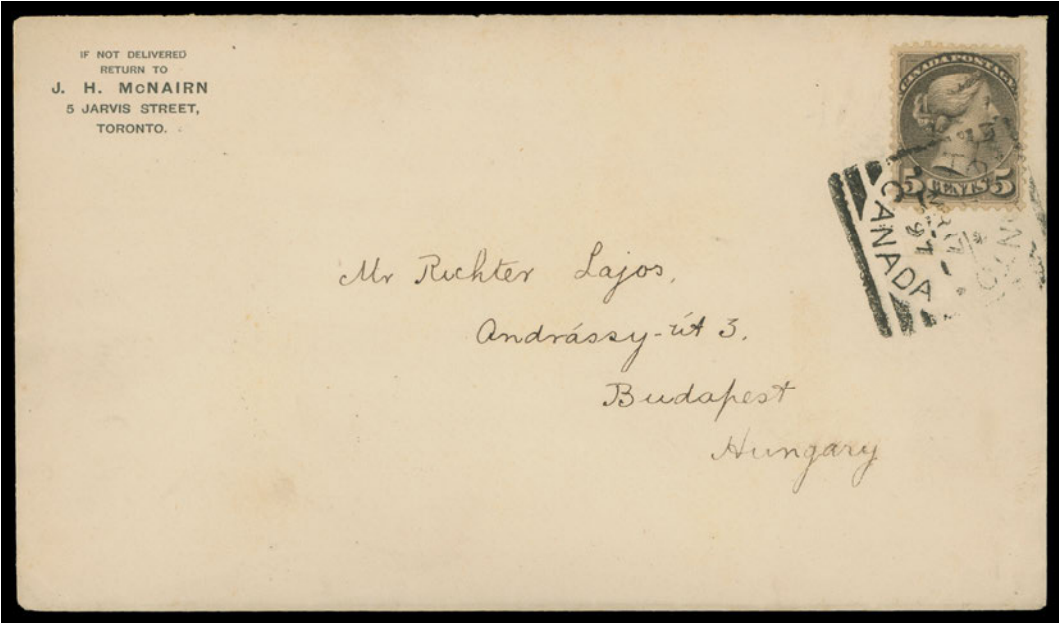 IF NOT DELIVERED
RETURN TO
J. H. McNAIRN
5 JARVIS STREET,
TORONTO.
CANADA POSTAGE
5 CENTS 5
CANADA
97
Mr Richter Lajos,
Andrássy-út 3.
Budapest
Hungary